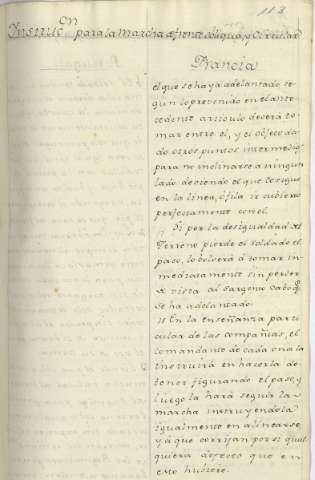 113
Instrucc.on para la Marcha de frente obliqua, y Circular
Francia
el que se haya adelantado se
gun lo prevenido en el ante
cedente articulo deverá to
mar entre el, y el objeto da
do otros puntos intermedios
para no inclinarse a ningun
lado debiendo el que le sigue
en la linea, ó fila ir cubierto
perfectamente con el.
Si por la desigualdad del
Terreno pierde el soldado el
paso, lo bolverá á tomar in
mediatamente sin perder
de vista al Sargento, Cabo q.e
se ha adelantado.
En la enseñanza parti
cular de las compañias, el
comandante de cada una la
instruirá en hacerla de
tener figurando el paso, y
luego la hará seguir la
marcha instruyendola
igualmente en alinearse,
y á que corrijan por si qual
quiera defecto que en
esto hubiere.